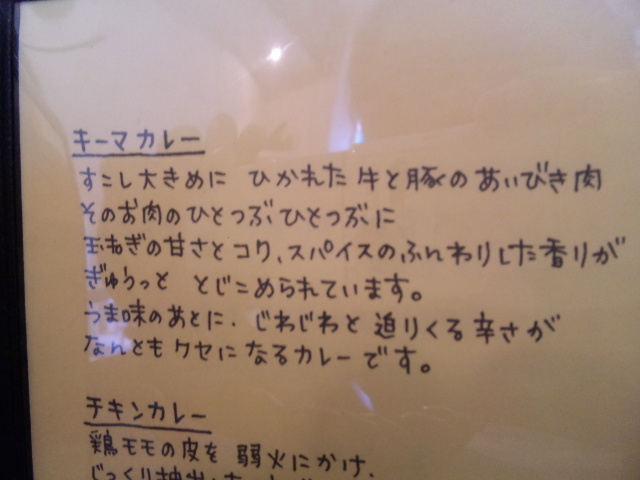 キーマカレー
すこし大きめに ひかれた 牛と豚の あいびき肉
そのお肉のひとつぶひとつぶに
玉ねぎの甘さとコク、スパイスのふんわりした香りが
ぎゅうっと とじこめられています。
うま味のあとに、じわじわと 迫りくる辛さが
なんともクセになるカレーです。
チキンカレー
鶏モモの皮を 弱火にかけ、
じっくり抽出